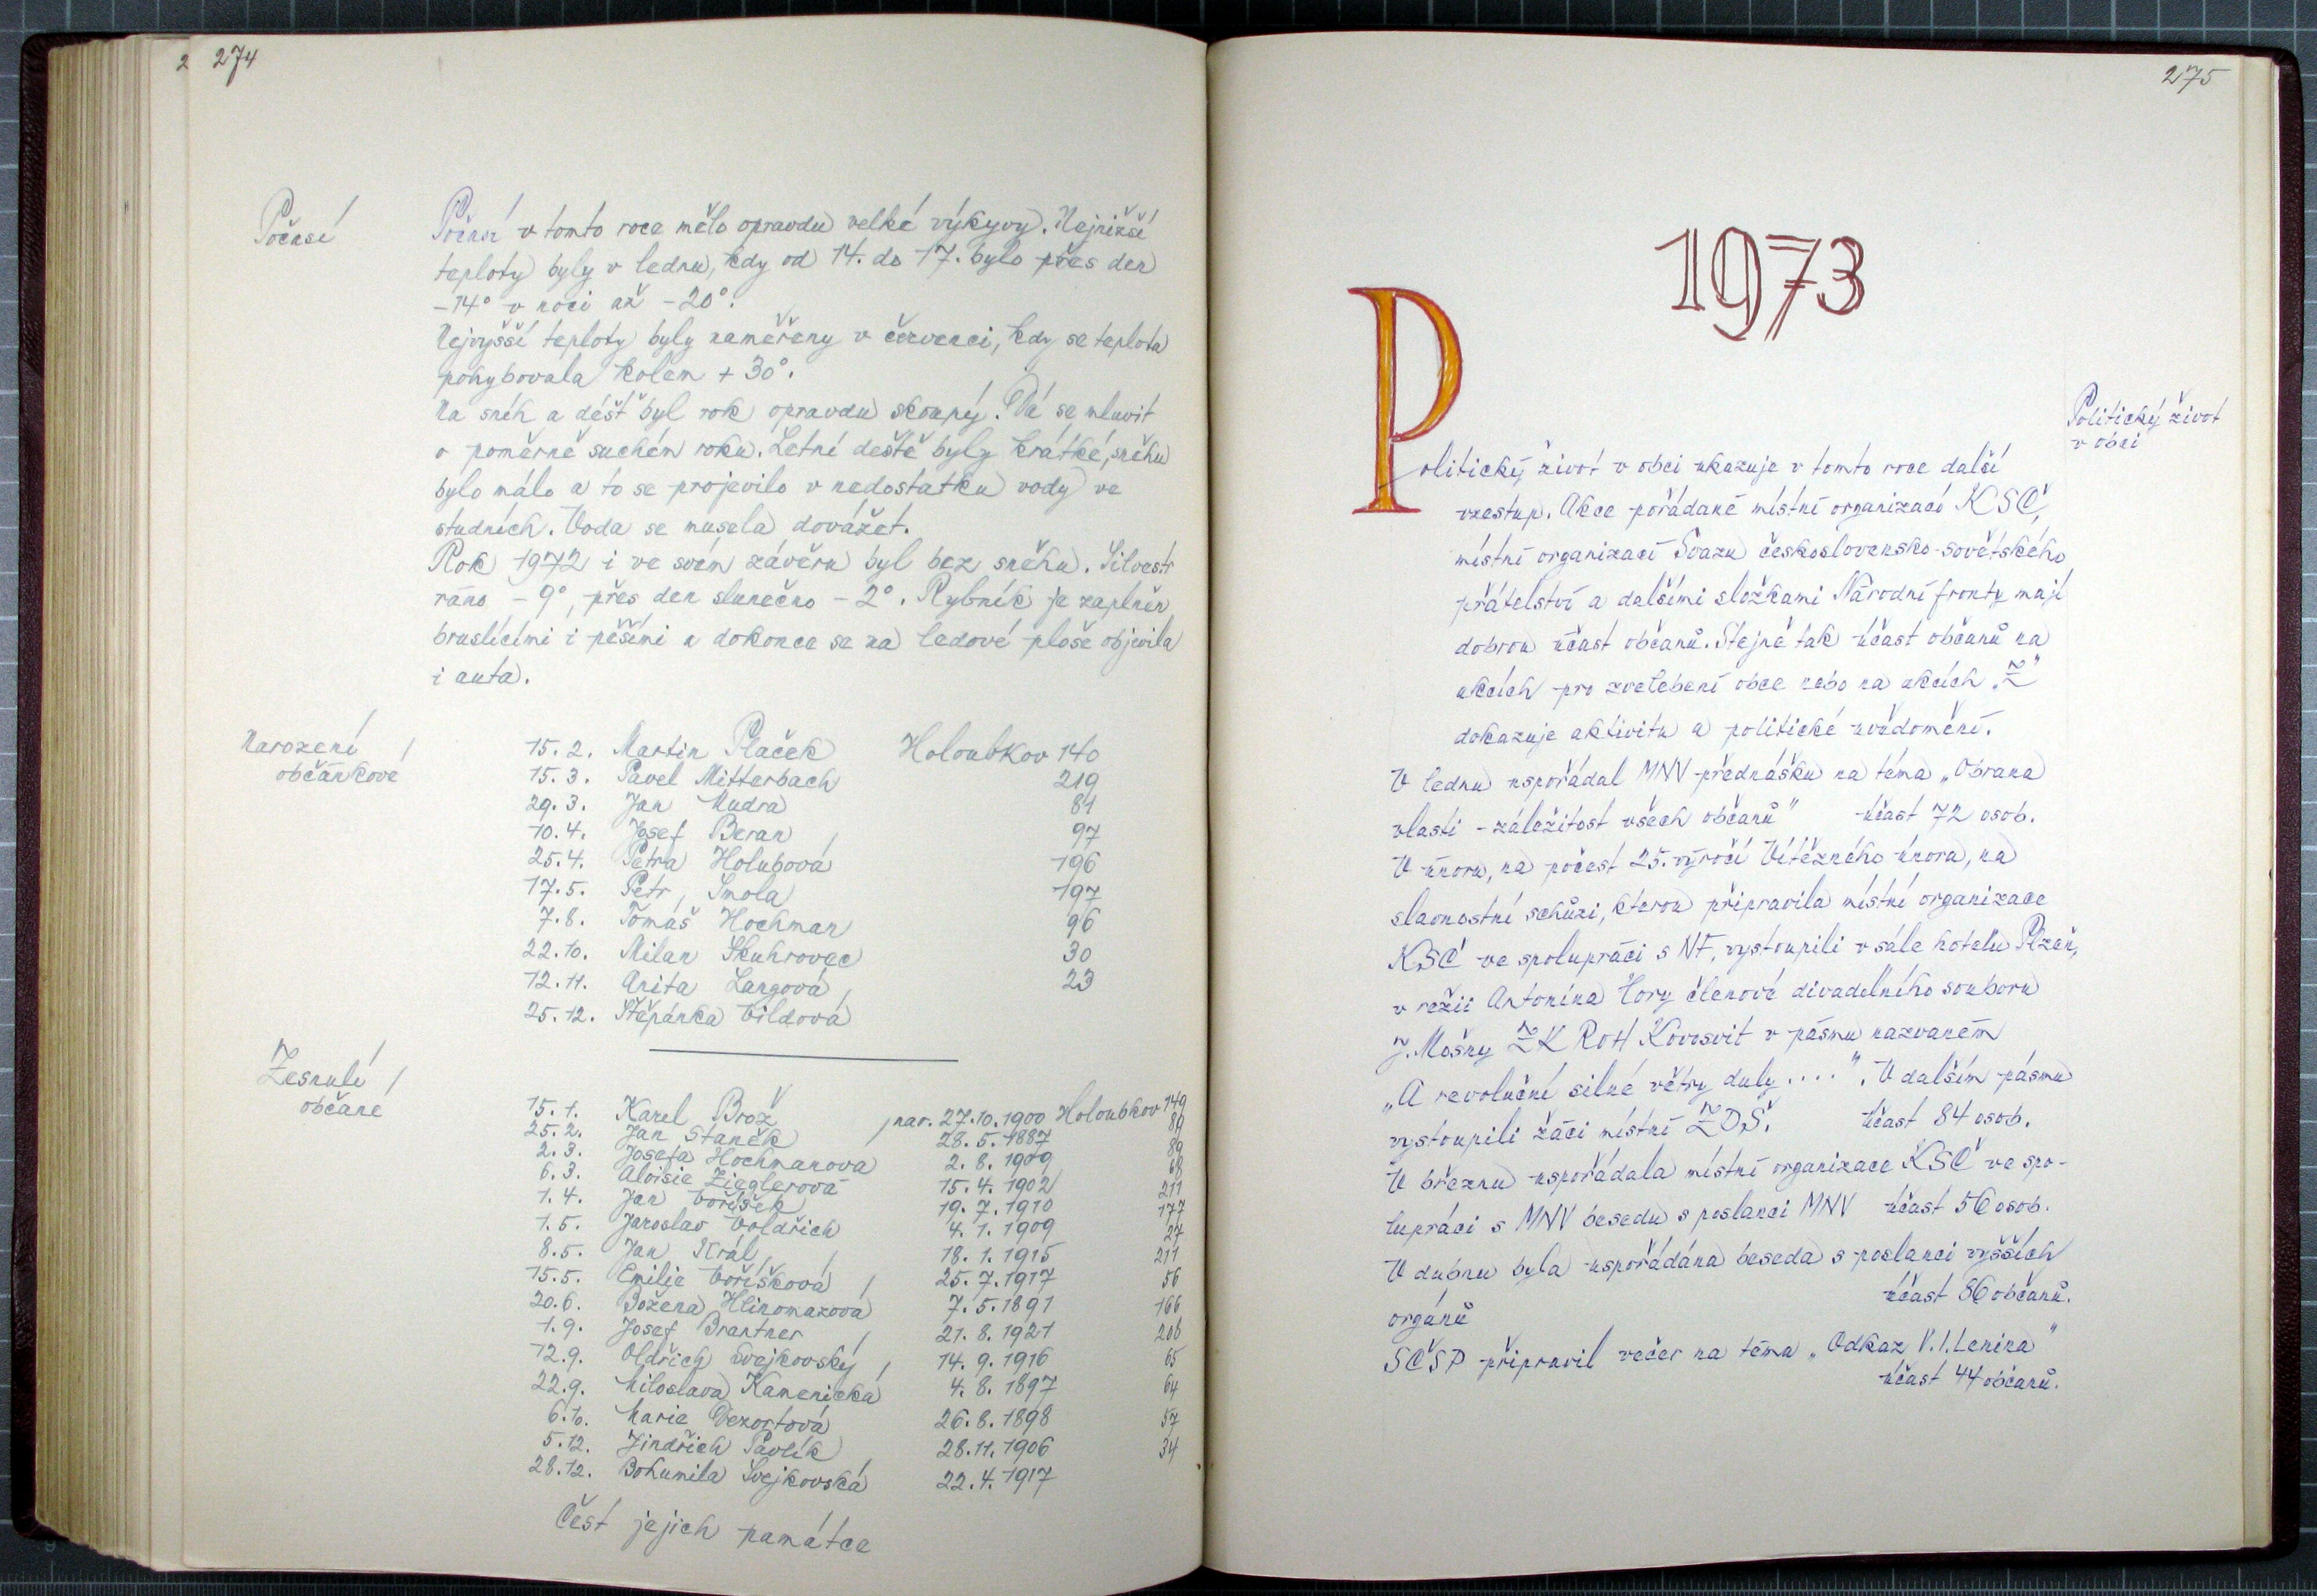 2 274
Počasí
Počasí v tomto roce mělo opravdu velké výkyvy. Nejnižší
teploty byly v lednu, kdy od 14. do 17. bylo přes den
-14° v noci až -20°.
Nejvyšší teploty byly naměřeny v červenci, kdy se teplota
pohybovala kolem +30°.
Na sníh a déšť byl rok opravdu skoupý. Dá se mluvit
o poměrně suchém roku. Letní deště byly krátké, sněhu
bylo málo a to se projevilo v nedostatku vody ve
studních. Voda se musela dovážet.
Rok 1972 i ve svém závěru byl bez sněhu. Silvestr
ráno -9°, přes den slunečno -2°. Rybník je zaplněn
bruslícími i pěšími a dokonce se na ledové ploše objevila
i auta.
Narození
občánkové
15.2. Martin Plaček Holoubkov 140
15.3. Pavel Mitterbach 219
29.3. Jan Mudra 81
10.4. Josef Beran 97
25.4. Petra Holubová 196
17.5. Petr Smola 197
7.8. Tomáš Hochman 96
22.10. Milan Skuhrovec 30
12.11. Anita Langová 23
25.12. Štěpánka Vildová
Zesnulí
občané
15.1. Karel Brož nar. 27.10.1900 Holoubkov 149
25.2. Jan Staněk 28.5.1887 89
2.3. Josefa Hochmanová 2.8.1909 89
6.3. Aloisie Zieglerová 15.4.1902 68
1.4. Jan Voříšek 19.7.1910 211
1.5. Jaroslav Voldřich 4.1.1909 177
8.5. Jan Král 18.1.1915 27
15.5. Emilie Voříšková 25.7.1917 211
20.6. Božena Hlinomazová 7.5.1891 56
1.9. Josef Brantner 21.8.1921 166
12.9. Oldřich Švejkovský 14.9.1916 206
22.9. Miloslava Kamenická 4.8.1897 65
6.10. Marie Dezortová 26.8.1898 64
5.12. Jindřich Pavlík 28.11.1906 57
28.12. Bohumila Švejkovská 22.4.1917 34
Čest jejich památce
275
1973
Politický život
v obci
Politický život v obci ukazuje v tomto roce další
vzestup. Akce pořádané místní organizací KSČ,
místní organizací Svazu československo-sovětského
přátelství a dalšími složkami Národní fronty mají
dobrou účast občanů. Stejně tak účast občanů na
akcích pro zvelebení obce nebo na akcích „Z"
dokazuje aktivitu a politické uvědomění.
V lednu uspořádal MNV přednášku na téma „Obrana
vlasti - záležitost všech občanů" účast 72 osob.
V únoru, na počest 25. výročí Vítězného února, na
slavnostní schůzi, kterou připravila místní organizace
KSČ ve spolupráci s NF, vystoupili v sále hotelu Plzeň,
v režii Antonína Hory členové divadelního souboru
J. Mošny ZK ROH Kovosvit v pásmu nazvaném
„A revoluční silné větry duly....". V dalším pásmu
vystoupili žáci místní ZDŠ. účast 84 osob.
V březnu uspořádala místní organizace KSČ ve spo-
lupráci s MNV besedu s poslanci MNV účast 56 osob.
V dubnu byla uspořádána beseda s poslanci vyšších
orgánů účast 86 občanů.
SČSP připravil večer na téma „Odkaz V.I.Lenina"
účast 44 občanů.